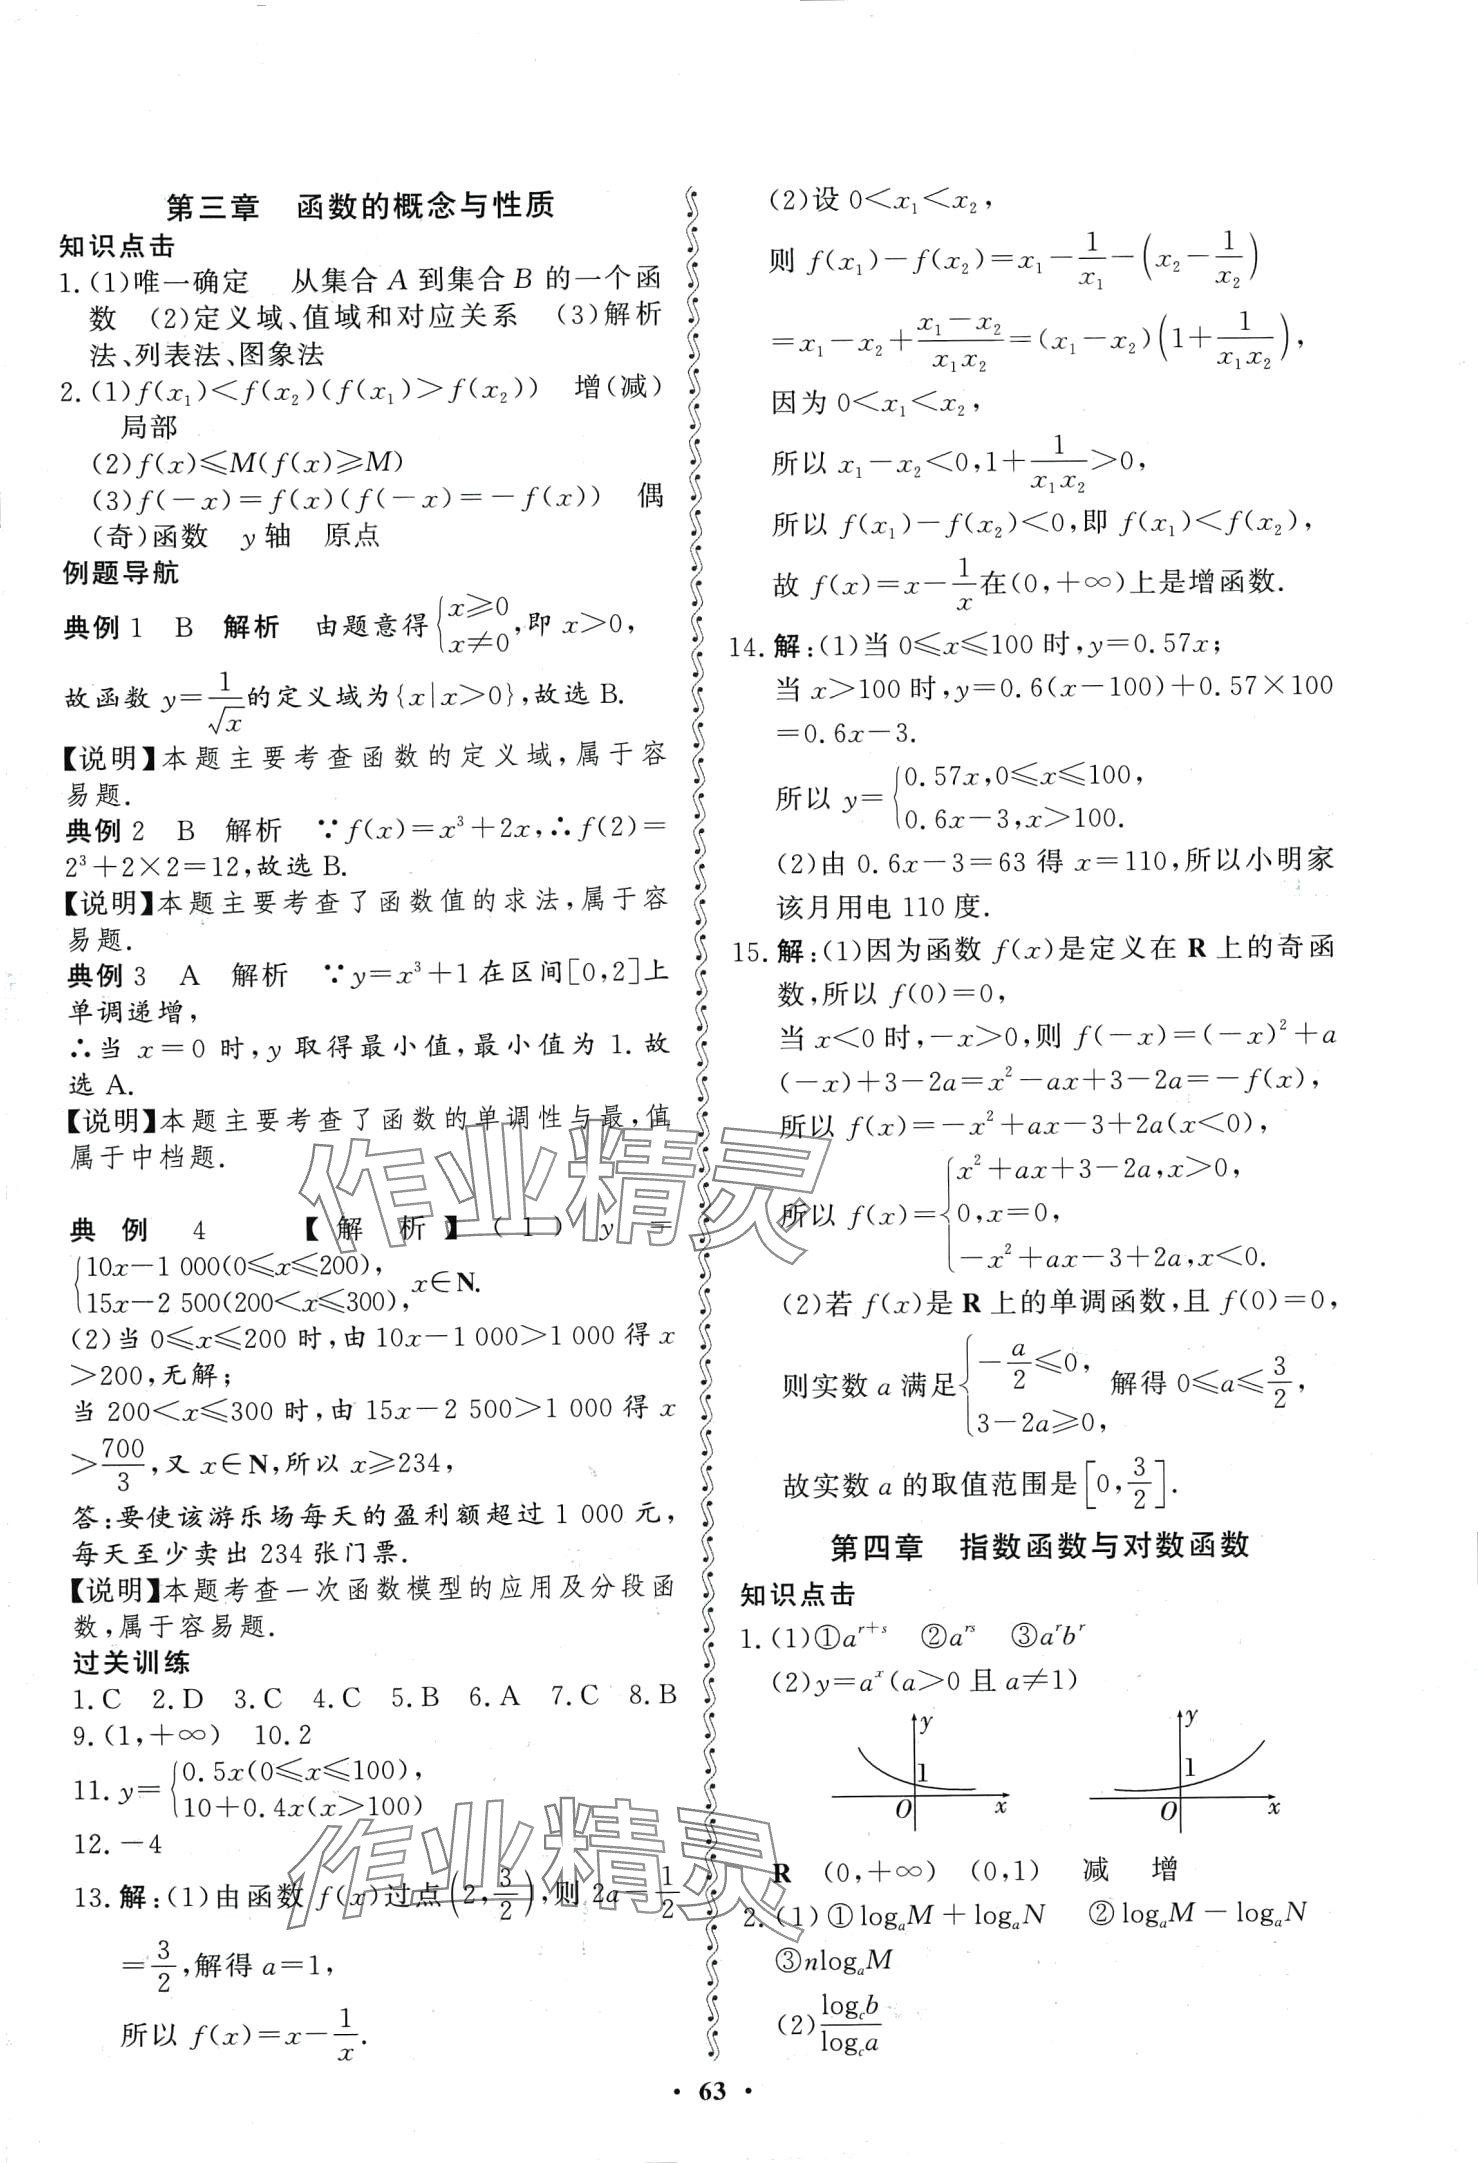 第三章 函数的概念与性质
知识点击
1.(1)唯一确定 从集合 A 到集合 B 的一个函
数 (2)定义域、值域和对应关系 (3)解析
法、列表法、图象法
2.(1)f(x₁)<f(x₂)(f(x₁)>f(x₂)) 增(减)
局部
(2)f(x)≤M(f(x)≥M)
(3)f(-x)=f(x)(f(-x)=-f(x)) 偶
(奇)函数 y 轴 原点
例题导航
典例 1 B 解析 由题意得{x≥0, x≠0,即 x>0,
故函数 y=1/√x的定义域为{x|x>0},故选 B.
【说明】本题主要考查函数的定义域,属于容
易题.
典例 2 B 解析 ∵f(x)=x³+2x,∴f(2)=
2³+2×2=12,故选 B.
【说明】本题主要考查了函数值的求法,属于容
易题.
典例 3 A 解析 ∵y=x³+1 在区间[0,2]上
单调递增,
∴当 x=0 时,y 取得最小值,最小值为 1.故
选 A.
【说明】本题主要考查了函数的单调性与最,值
属于中档题.
典 例 4 【 解 析 】 ( 1 ) y =
{10x-1 000(0≤x≤200),
15x-2 500(200<x≤300), x∈N.
(2)当 0≤x≤200 时,由 10x-1 000>1 000 得 x
>200,无解;
当 200<x≤300 时,由 15x-2 500>1 000 得 x
>700/3,又 x∈N,所以 x≥234,
答:要使该游乐场每天的盈利额超过 1 000 元,
每天至少卖出 234 张门票.
【说明】本题考查一次函数模型的应用及分段函
数,属于容易题.
过关训练
1.C 2.D 3.C 4.C 5.B 6.A 7.C 8.B
9.(1,+∞) 10.2
11.y={0.5x(0≤x≤100),
10+0.4x(x>100)
12.-4
13.解:(1)由函数 f(x)过点(2,3/2),则 2a-1/2
=3/2,解得 a=1,
所以 f(x)=x-1/x.
(2)设 0<x₁<x₂,
则 f(x₁)-f(x₂)=x₁-1/x₁-(x₂-1/x₂)
=x₁-x₂+(x₁-x₂)/(x₁x₂)=(x₁-x₂)(1+1/(x₁x₂)),
因为 0<x₁<x₂,
所以 x₁-x₂<0,1+1/(x₁x₂)>0,
所以 f(x₁)-f(x₂)<0,即 f(x₁)<f(x₂),
故 f(x)=x-1/x在(0,+∞)上是增函数.
14.解:(1)当 0≤x≤100 时,y=0.57x;
当 x>100 时,y=0.6(x-100)+0.57×100
=0.6x-3.
所以 y={0.57x,0≤x≤100,
0.6x-3,x>100.
(2)由 0.6x-3=63 得 x=110,所以小明家
该月用电 110 度.
15.解:(1)因为函数 f(x)是定义在 R 上的奇函
数,所以 f(0)=0,
当 x<0 时,-x>0,则 f(-x)=(-x)²+a
(-x)+3-2a=x²-ax+3-2a=-f(x),
所以 f(x)=-x²+ax-3+2a(x<0),
所以 f(x)={x²+ax+3-2a,x>0,
0,x=0,
-x²+ax-3+2a,x<0.
(2)若 f(x)是 R 上的单调函数,且 f(0)=0,
则实数 a 满足{-a/2≤0, 3-2a≥0, 解得 0≤a≤3/2,
故实数 a 的取值范围是[0,3/2].
第四章 指数函数与对数函数
知识点击
1.(1)①aʳ⁺ˢ ②aʳˢ ③aʳbʳ
(2)y=aˣ(a>0 且 a≠1)
y 1 O x y 1 O x
R (0,+∞) (0,1) 减 增
2.(1)①logₐM+logₐN ②logₐM-logₐN
③nlogₐM
(2)log_c b/log_c a
· 63 ·
作业精灵
作业精灵